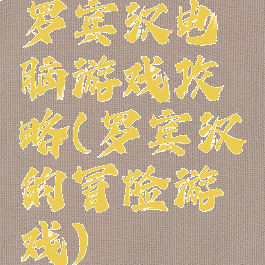 罗宾汉电
脑游戏攻
略(罗宾汉
的冒险游
戏)